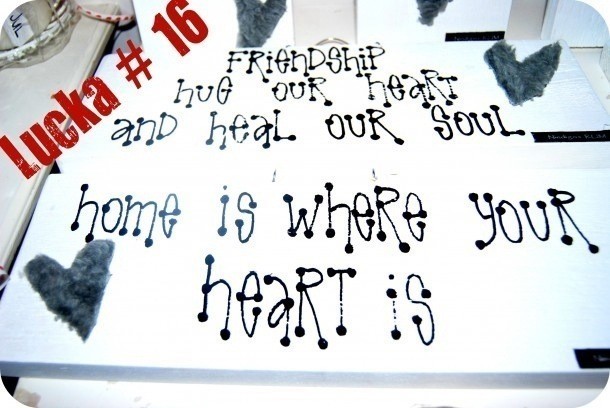 Lucka # 16
FRIENDSHIP
HUG OUR HEART
AND HEAL OUR SOUL
home is where your
heart is